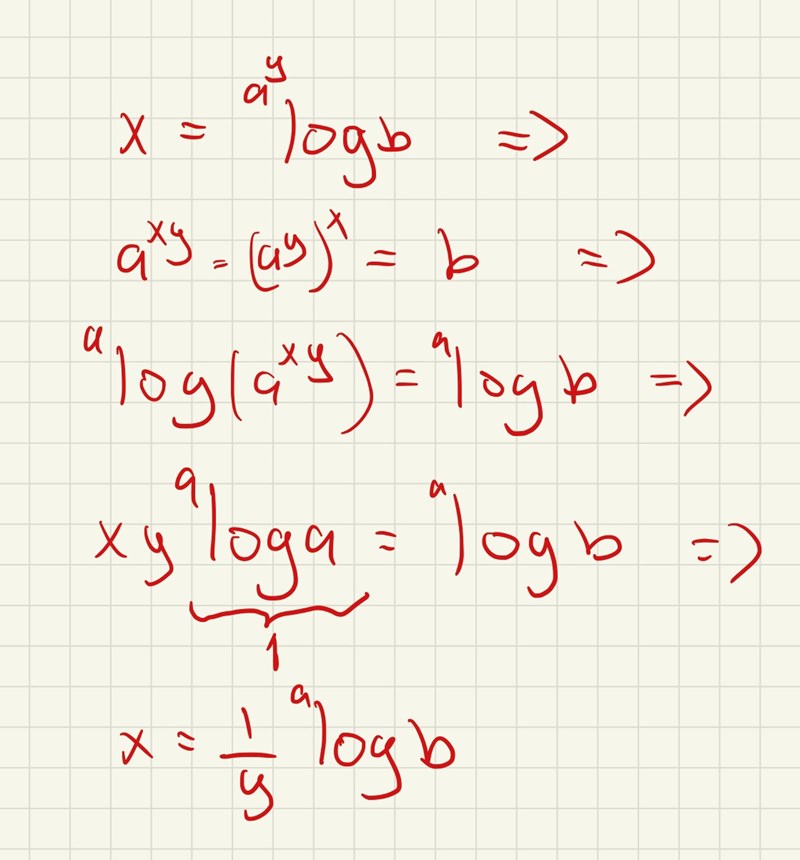 x = ᵃ^ʸlog b =>
a^xy = (a^y)^x = b =>
ᵃlog(a^xy) = ᵃlog b =>
xy ᵃlog a = ᵃlog b =>
1
x = 1/y ᵃlog b